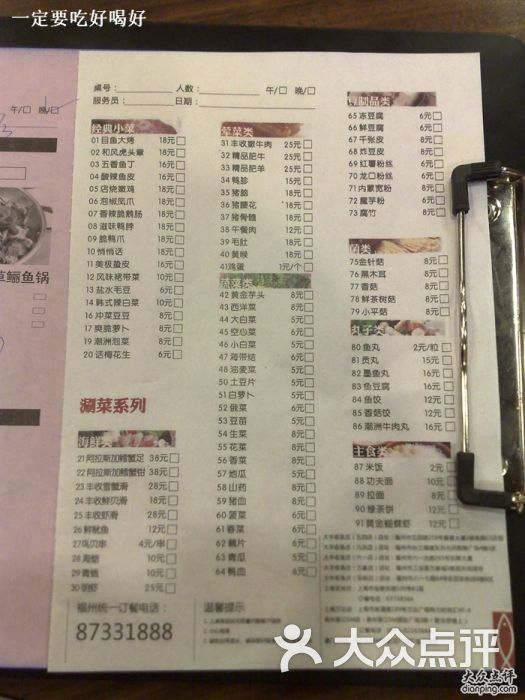 一定要吃好喝好
午/□ 晚/□
草鲡鱼锅
桌号： 人数： 午/□ 晚/□
服务员： 日期：
经典小菜
01目鱼大烤 18元
02和风虎头章 18元
03五香鱼丁 16元
04酸辣鱼皮 16元
05店烧嫩鸡 18元
06泡椒凤爪 18元
07香辣脆鹅肠 18元
08滋味鸭脖 18元
09脆鸭爪 18元
10悄悄话 18元
11美极盈皮 16元
12风味裙带菜 10元
13盐水毛豆 6元
14韩式辣白菜 10元
16冲菜豆豆 8元
17爽脆萝卜 8元
19潮洲泡菜 8元
20话梅花生 6元
涮菜系列
海鲜类
21阿拉斯加鳕蟹足 38元
22阿拉斯加鳕蟹钳 38元
23丰收雪蟹滑 28元
24丰收鲜贝滑 28元
25丰收虾滑 28元
26鲜鱿鱼 12元
27鸟贝串 4元/串
28海蛏 10元
29青蛾 10元
30明虾 25元
荤菜类
31丰收嫩牛肉 25元
32精品肥牛 25元
33精品肥羊 25元
34鸭胗 15元
35猪脑 15元
36猪腰花 15元
37猪骨髓 18元
38午餐肉 12元
39毛肚 18元
40黄喉 18元
41鸡蛋 1元/个
蔬菜类
42黄金芋头 8元
43西洋菜 8元
44大白菜 5元
45空心菜 5元
46小白菜 5元
47海带结 6元
48油麦菜 5元
50土豆片 5元
51白萝卜 5元
52俄菜 6元
53豆苗 5元
54生菜 8元
55花菜 8元
56香菜 8元
57地瓜 5元
58山药 8元
59猪血 8元
60菠菜 6元
61春菜 6元
62藕片 6元
63青瓜 5元
64鸭血 12元
豆制品类
65冻豆腐 6元
66鲜豆腐 6元
67千张皮 8元
68炸豆皮 8元
69红薯粉丝 6元
70龙口粉丝 6元
71内蒙宽粉 6元
72魔芋粉 6元
73腐竹 8元
菌类
75金针菇 8元
76黑木耳 8元
77香菇 8元
78鲜茶树菇 8元
79小平菇 8元
丸子类
80鱼丸 2元/粒
81贡丸 15元
82墨鱼丸 16元
83鱼豆腐 16元
84鱼饺 12元
85香菇饺 12元
86潮洲牛肉丸 16元
主食类
87米饭 2元
88功夫面 10元
89拉面 8元
90绿茶饼 12元
91黄金蝴蝶虾 6元
福州统一订餐电话：
87331888
温馨提示
大众点评
大众点评
dianping.com